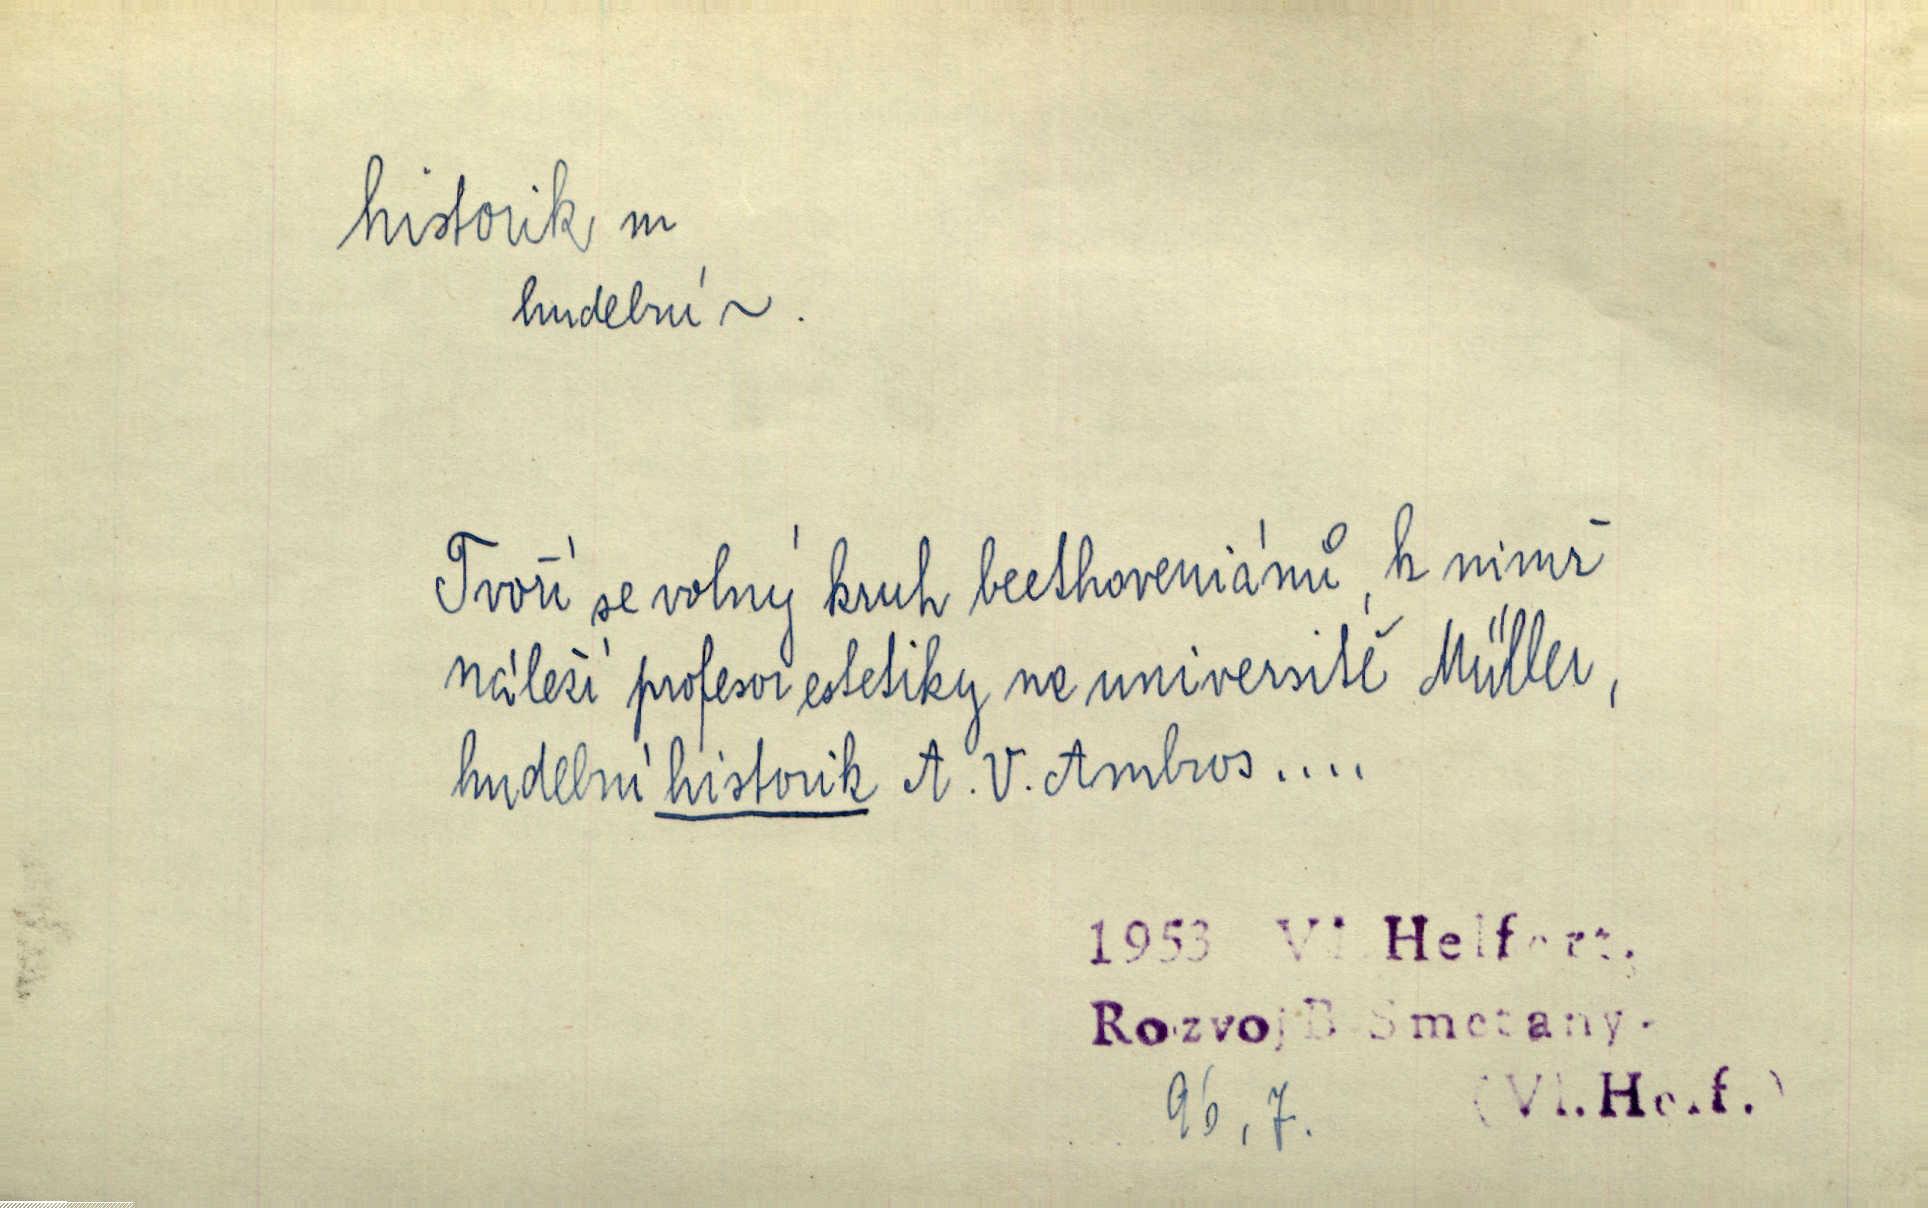 historik, m
hudební ~ .
Tvoří se volný kruh beethoveniánů, k nimž
náleží profesor estetiky na universitě Müller,
hudební historik A. V. Ambros....
1953 Vl. Helfert,
Rozvoj B. Smetany.
96, 7. (Vl. Helf.)